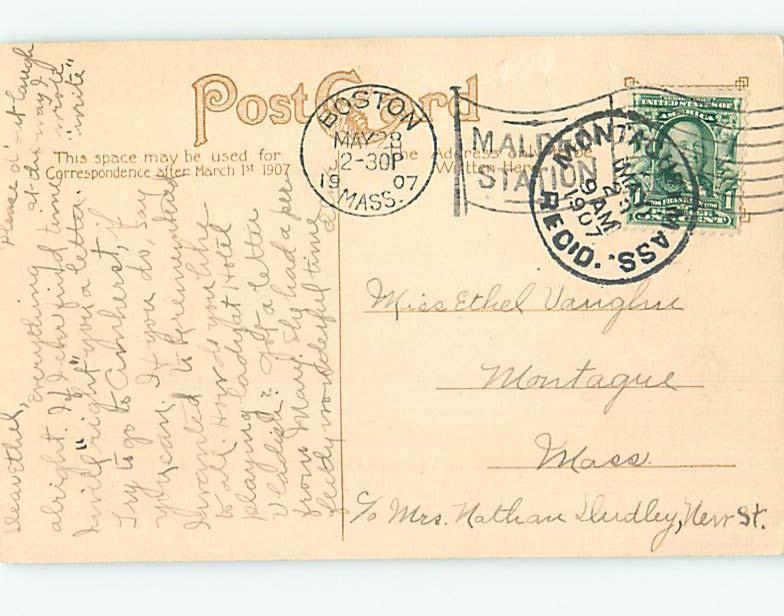 Post Card
This space may be used for
Correspondence after March 1st 1907
The Address
BOSTON
MAY 28
2-30P
19 07
MASS.
MALDEN
STATION
MONTAGUE MASS.
MAY
9 AM
1907
REC'D.
UNITED STATES OF AMERICA
FRANKLIN
1
CENT
Miss Ethel Vaughn
Montague
Mass.
c/o Mrs. Nathan Dudley, New St.
Dear Ethel,
Everything
alright. If I can find time
I will "right" you a letter.
Try to go to Amherst, if
you can. If you do, say
I wanted to be remembered
to all. How do you like
playing lady at Hotel
? Got a letter
from Mary. She had a per-
fectly wonderful time
Please don't laugh
at the way I wrote
"write"